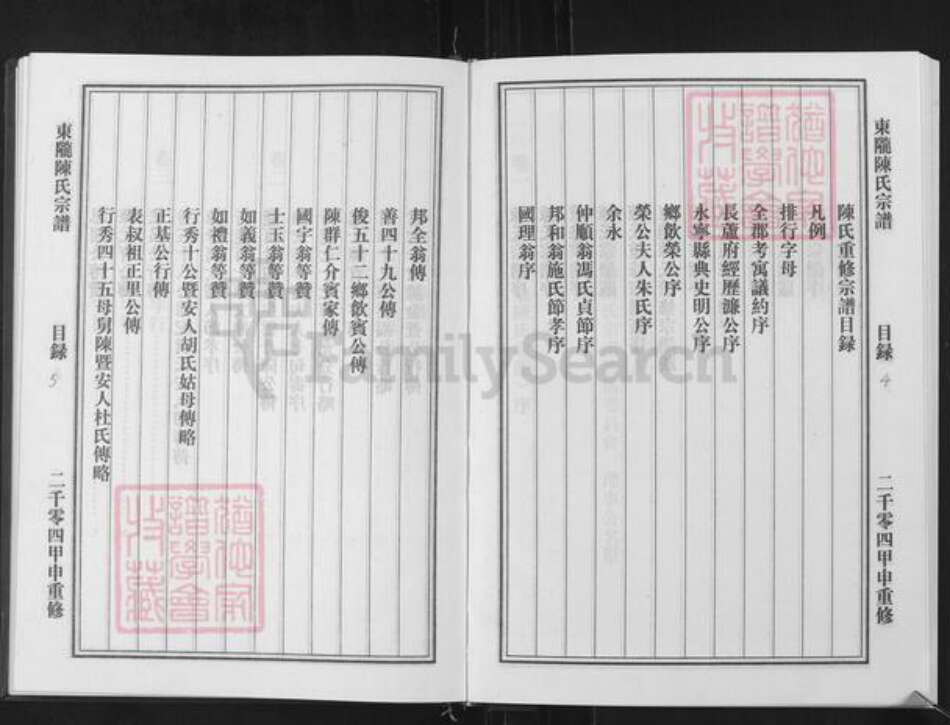 東隴陳氏宗譜
目録
4
二千零四甲申重修
陳氏重修宗譜目録
凡例
排行字母
全郡考寓議約序
長蘆府經歷濂公序
永寧縣典史明公序
鄉飲榮公序
榮公夫人朱氏序
余永
仲順翁馮氏貞節序
邦和翁施氏節孝序
國理翁序
邦全翁傳
善四十九公傳
俊五十二鄉飲賓公傳
陳群仁介賓家傳
國宇翁等贊
士玉翁等贊
如義翁等贊
如禮翁等贊
行秀十公暨安人胡氏姑母傳略
正基公行傳
表叔祖正里公傳
行秀四十五母舅陳暨安人杜氏傳略
東隴陳氏宗譜
目録
5
二千零四甲申重修
猶他家
譜學會
收藏
猶他家
譜學會
收藏
FamilySearch